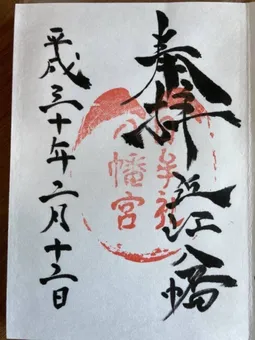 奉拝
近江八幡
日牟礼
八幡宮
平成三十年二月十二日